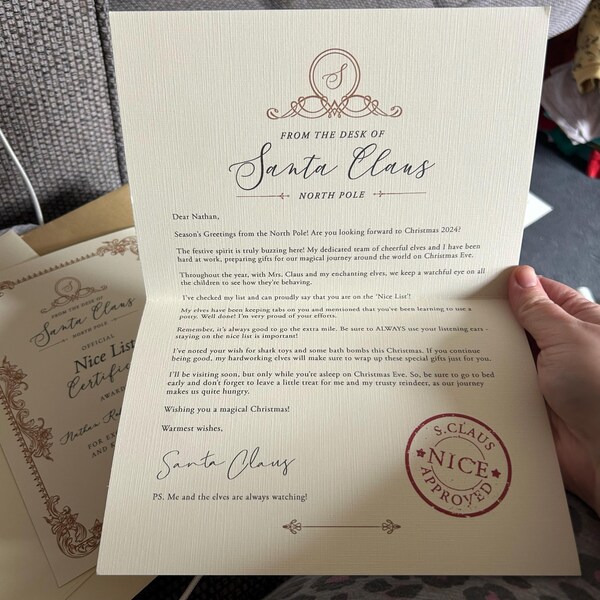 S
FROM THE DESK OF
Santa Claus
NORTH POLE
Dear Nathan,
Season's Greetings from the North Pole! Are you looking forward to Christmas 2024?
The festive spirit is truly buzzing here! My dedicated team of cheerful elves and I have been
hard at work, preparing gifts for our magical journey around the world on Christmas Eve.
Throughout the year, with Mrs. Claus and my enchanting elves, we keep a watchful eye on all
the children to see how they're behaving.
I've checked my list and can proudly say that you are on the 'Nice List'!
My elves have been keeping tabs on you and mentioned that you've been learning to use a
potty. Well done! I'm very proud of your efforts.
Remember, it's always good to go the extra mile. Be sure to ALWAYS use your listening ears -
staying on the nice list is important!
I've noted your wish for shark toys and some bath bombs this Christmas. If you continue
being good, my hardworking elves will make sure to wrap up these special gifts just for you.
I'll be visiting soon, but only while you're asleep on Christmas Eve. So, be sure to go to bed
early and don't forget to leave a little treat for me and my trusty reindeer, as our journey
makes us quite hungry.
Wishing you a magical Christmas!
Warmest wishes,
Santa Claus
PS. Me and the elves are always watching!
S.CLAUS
NICE
APPROVED
FROM THE DESK OF
Santa Claus
NORTH POLE
OFFICIAL
Nice List
Nathan